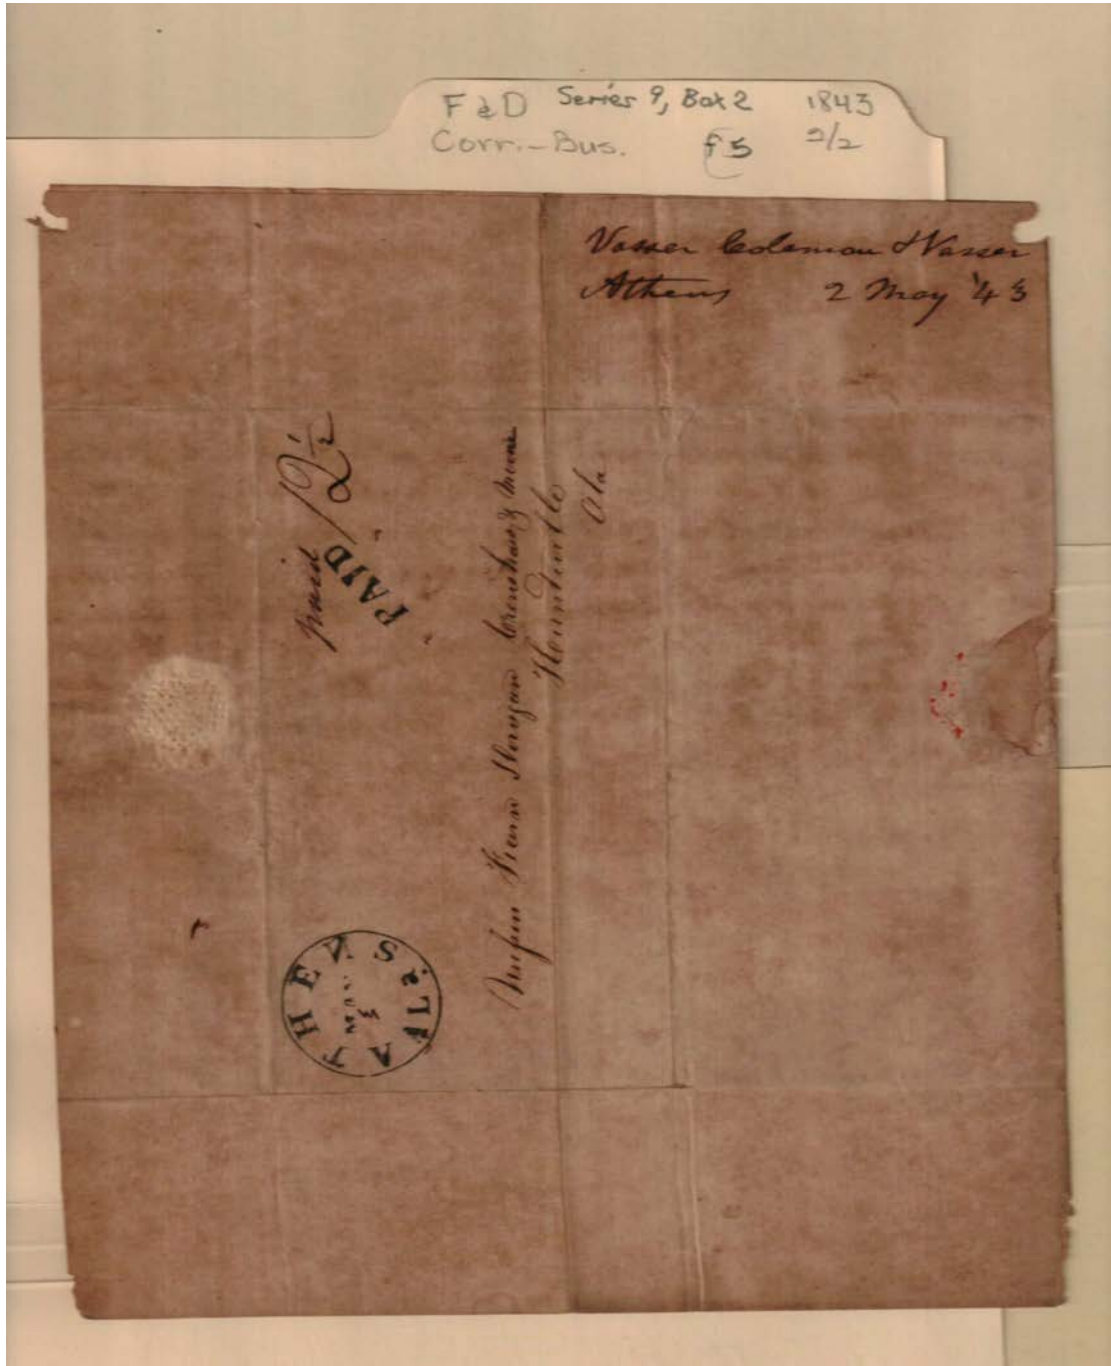 F & D Series 9, Box 2 1843
Corr.-Bus. f5 2/2
Vasser Coleman & Vasser
Athens 2 May '43
paid 12 1/2
PAID
Fearn Donegan Crenshaw &
Huntsville
Ala
ATHENS
Ala
3